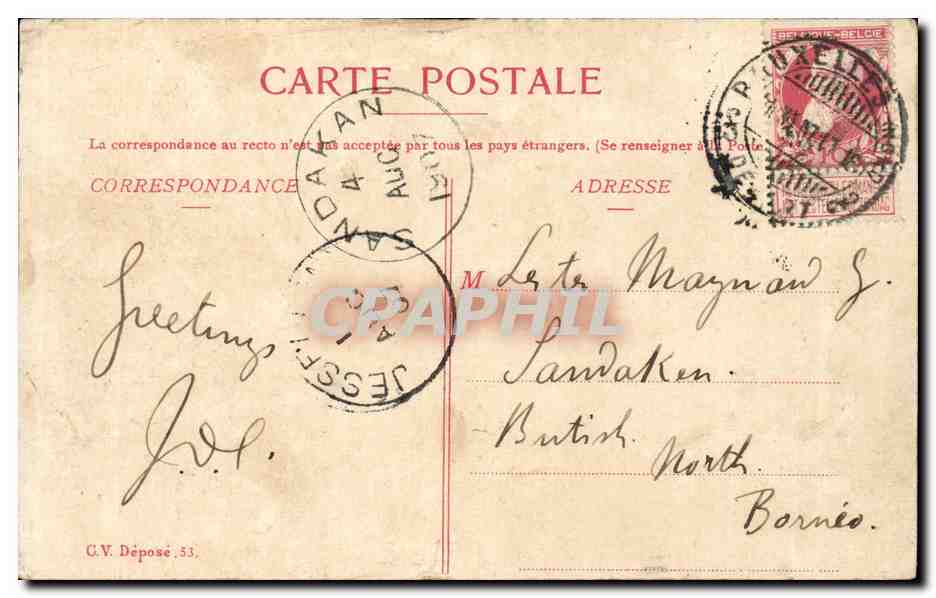 BELGIQUE-BELGIE
BRUXELLES
CARTE POSTALE
SANDAKAN
4
AUG
La correspondance au recto n'est pas acceptée par tous les pays étrangers. (Se renseigner à la Poste
CORRESPONDANCE
ADRESSE
Greetings
J.D.C.
JESSE
1
M Lester Maynard
Sandaken.
British
North
Bornéo.
CPAPHIL
G.V. Déposé, 53.